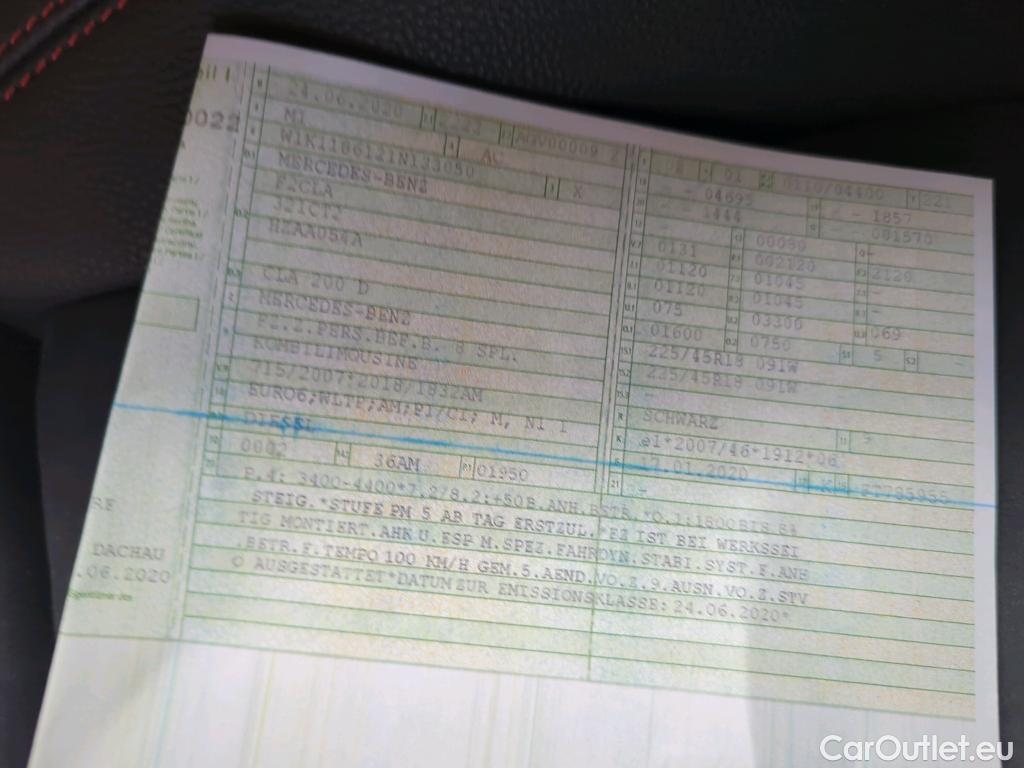 24.06.2020
M1 AC
W1K1186121N133050
MERCEDES-BENZ X
F2CLA
321CT2
HZAA054A
CLA 200 D
MERCEDES-BENZ
FZ.Z.PERS.BEF.B. 8 SPL.
KOMBILIMOUSINE
715/2007*2018/1832AM
EURO6;WLTP;AM;PI/CI; M, N1 I
DIESEL
0002 36AM 01950
01
04695 1857
1444 001570
0131 00080
01120 002120 2120
01120 01045
075 01045
01600 03300 069
0750 5
225/45R18 091W
225/45R18 091W
SCHWARZ
e1*2007/46*1912*06
17.01.2020 K
P.4: 3400-4400*7.2/8.2:+50B.ANH.BETR.*O.1:1800BIS 8%
STEIG.*STUFE PM 5 AB TAG ERSTZUL.*FZ IST BEI WERKSSEI
TIG MONTIERT.AHK U.ESP M.SPEZ.FAHRDYN.STABI.SYST.F.ANH
.BETR.F.TEMPO 100 KM/H GEM.5.AEND.VO.Z.9.AUSN.VO.Z.STV
O AUSGESTATTET*DATUM ZUR EMISSIONSKLASSE: 24.06.2020*
DACHAU
.06.2020
CarOutlet.eu